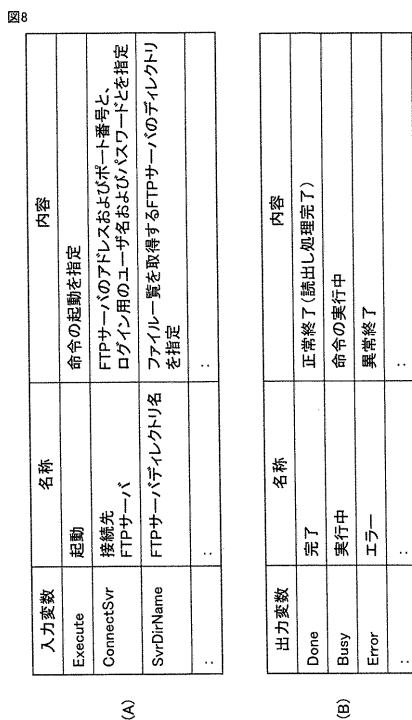 図8
(A)
入力変数 名称 内容
Execute 起動 命令の起動を指定
ConnectSvr 接続先
FTPサーバ FTPサーバのアドレスおよびポート番号と、
ログイン用のユーザ名およびパスワードとを指定
SvrDirName FTPサーバディレクトリ名 ファイル一覧を取得するFTPサーバのディレクトリ
を指定
: : :
(B)
出力変数 名称 内容
Done 完了 正常終了(読出し処理完了)
Busy 実行中 命令の実行中
Error エラー 異常終了
: : :